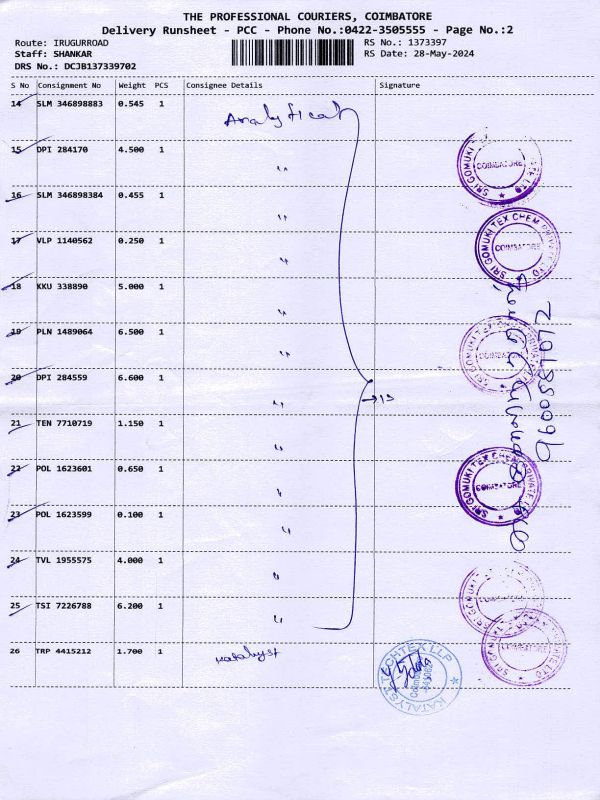 THE PROFESSIONAL COURIERS, COIMBATORE
Delivery Runsheet - PCC - Phone No.:0422-3505555 - Page No.:2
Route: IRUGURROAD
Staff: SHANKAR
DRS No.: DCJB137339702
RS No.: 1373397
RS Date: 28-May-2024
S No Consignment No Weight PCS Consignee Details Signature
14 SLM 346898883 0.545 1 Analytical
15 DPI 284170 4.500 1 "
16 SLM 346898384 0.455 1 "
17 VLP 1140562 0.250 1 "
18 KKU 338890 5.000 1 "
19 PLN 1489064 6.500 1 "
20 DPI 284559 6.600 1 "
21 TEN 7710719 1.150 1 "
22 POL 1623601 0.650 1 "
23 POL 1623599 0.100 1 "
24 TVL 1955575 4.000 1 "
25 TSI 7226788 6.200 1 "
26 TRP 4415212 1.700 1 Katalyst
SRI GOMUKI TEX CHEM PRIVATE LTD
COIMBATORE
SRI GOMUKI TEX CHEM PRIVATE LTD
COIMBATORE
SRI GOMUKI TEX CHEM PRIVATE LTD
COIMBATORE
KATALYST TECHTEX LLP